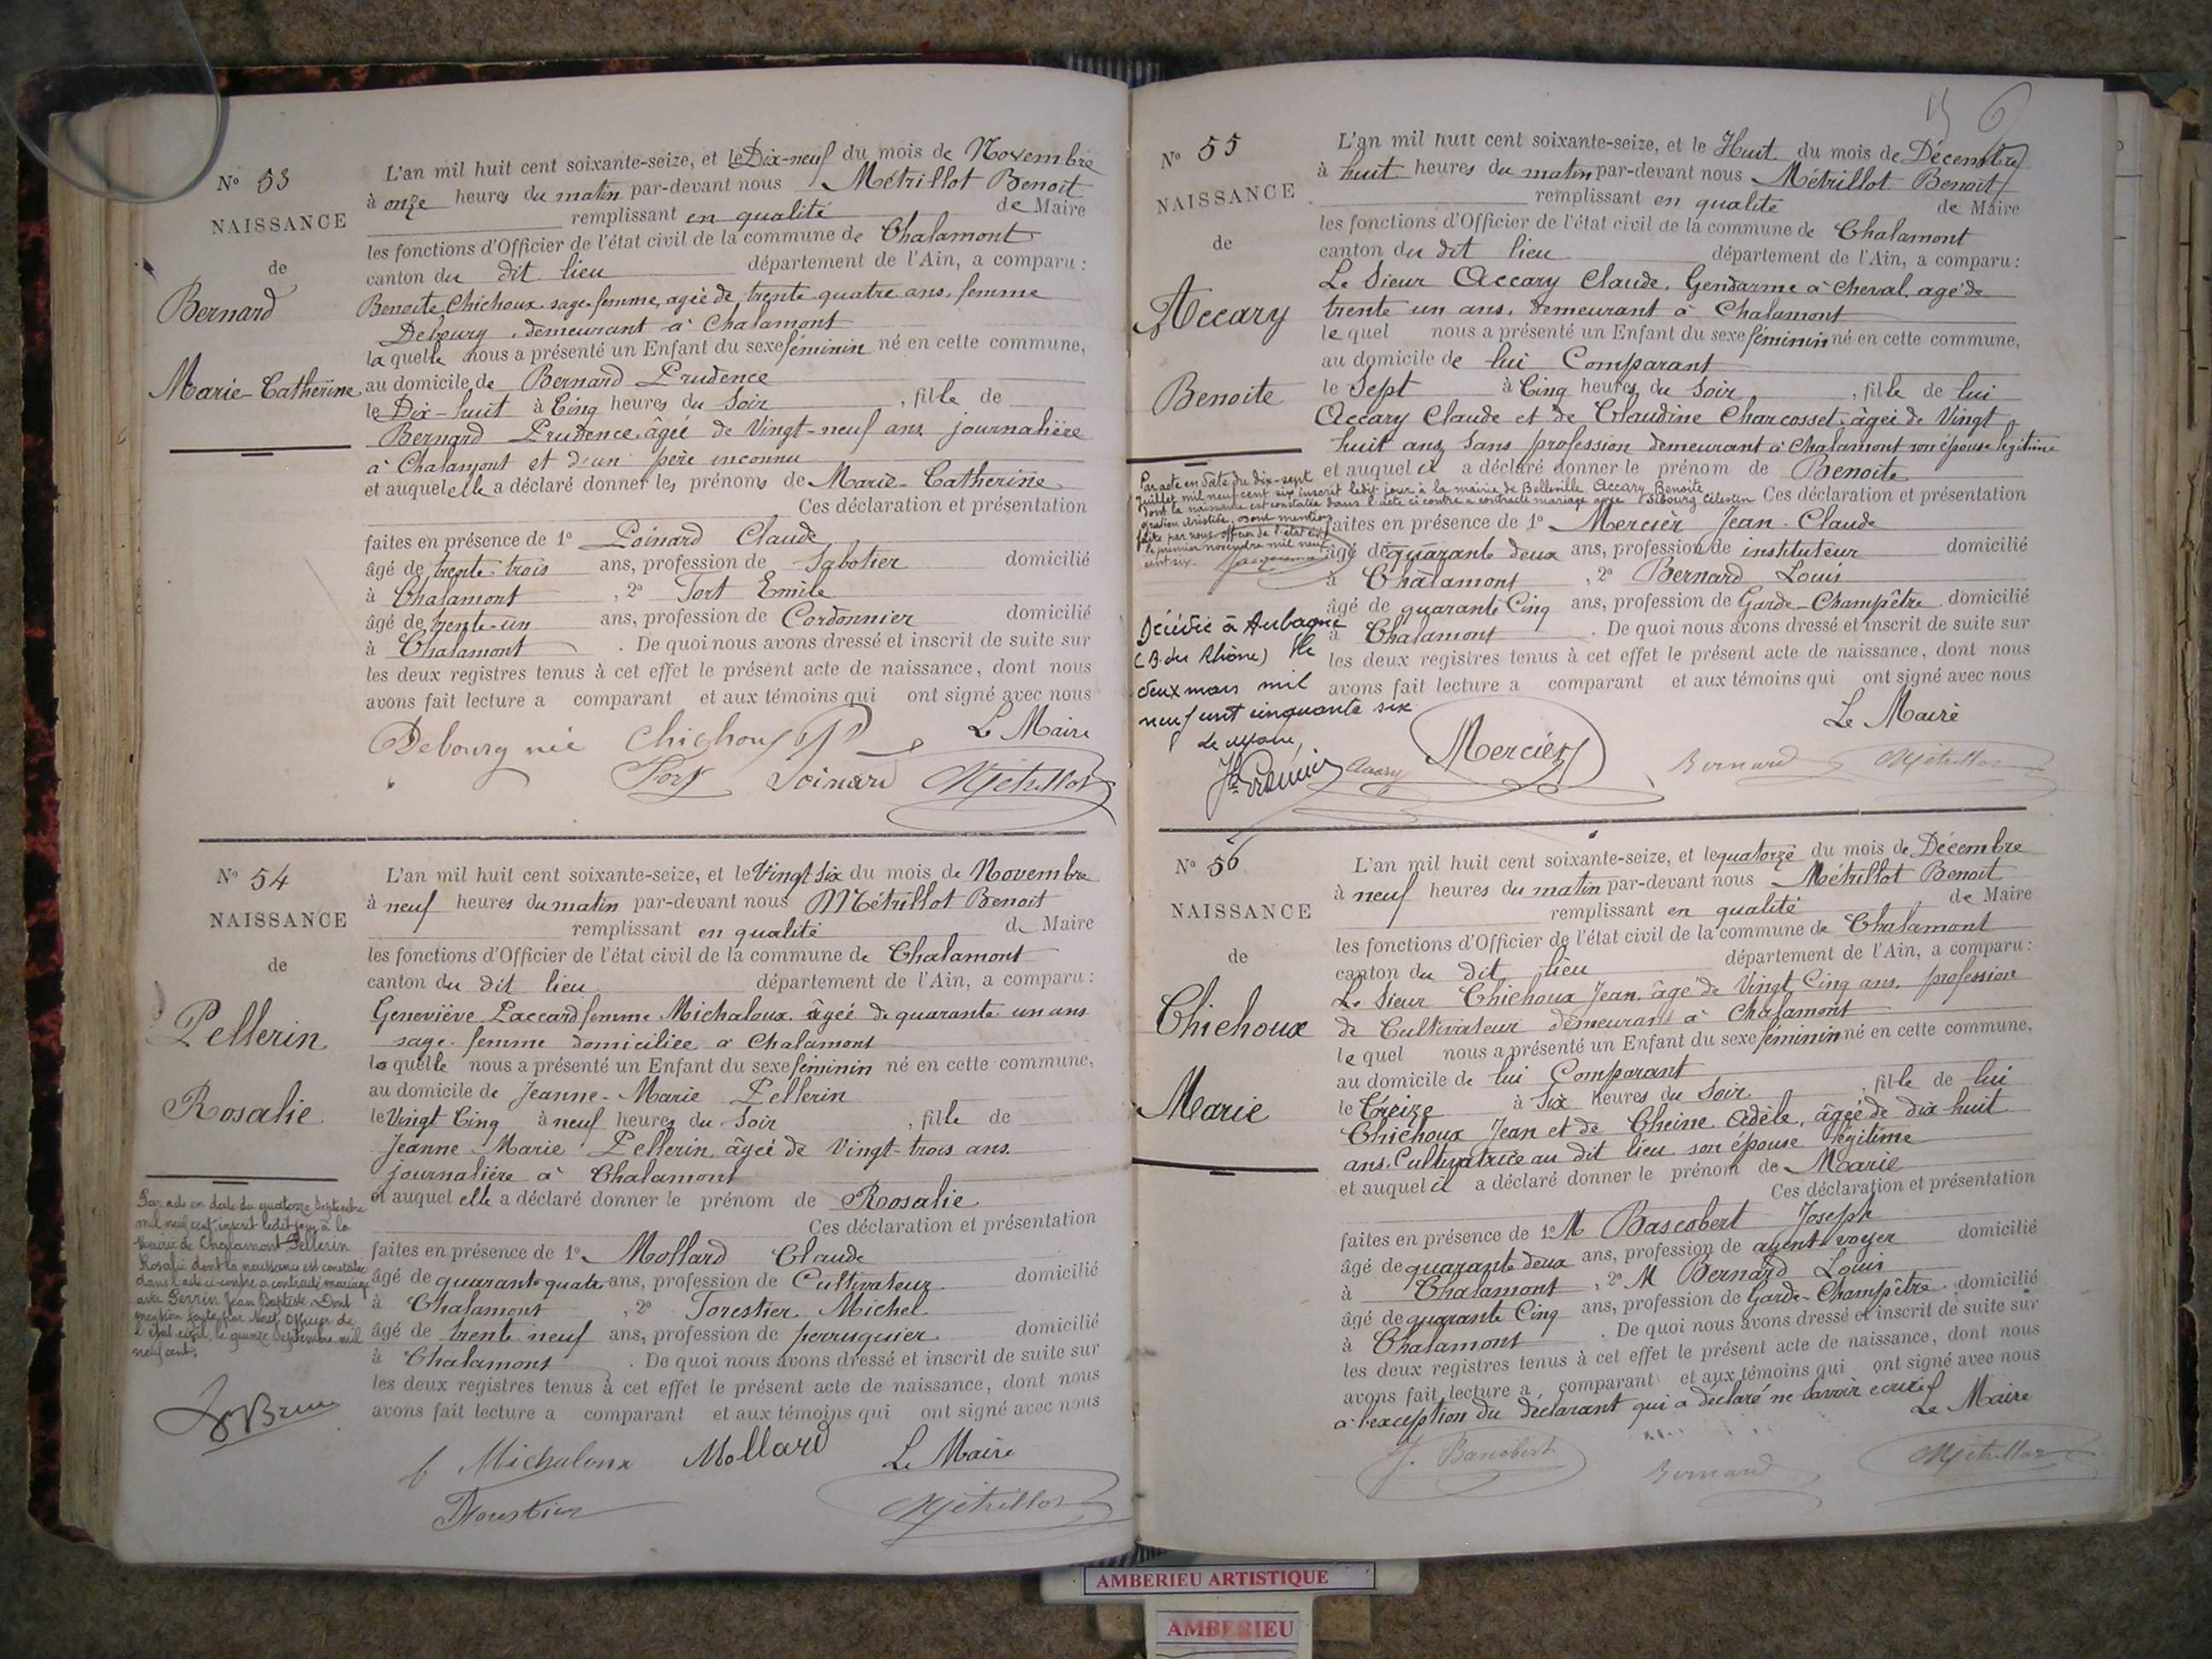 N° 53
NAISSANCE
de
Bernard
Marie-Catherine
L'an mil huit cent soixante-seize, et le Dix-neuf du mois de Novembre
à onze heures du matin par-devant nous Métrillot Benoit
remplissant en qualité de Maire
les fonctions d'Officier de l'état civil de la commune de Chalamont
canton du dit lieu département de l'Ain, a comparu :
Benoite Chichoux sage-femme, agée de trente quatre ans, femme
Debourg, demeurant à Chalamont
la quelle nous a présenté un Enfant du sexe féminin né en cette commune,
au domicile de Bernard Prudence
le Dix-huit à Cinq heures du Soir, fille de
Bernard Prudence, âgée de Vingt-neuf ans journalière
à Chalamont et d'un père inconnu
et auquel elle a déclaré donner les prénoms de Marie-Catherine
Ces déclaration et présentation
faites en présence de 1° Poinard Claude
âgé de trente-trois ans, profession de Sabotier domicilié
à Chalamont, 2° Fort Emile
âgé de trente-un ans, profession de Cordonnier domicilié
à Chalamont. De quoi nous avons dressé et inscrit de suite sur
les deux registres tenus à cet effet le présent acte de naissance, dont nous
avons fait lecture a comparant et aux témoins qui ont signé avec nous
Debourg née Chichoux Le Maire
Fort Poinard Métrillot
N° 54
NAISSANCE
de
Pellerin
Rosalie
L'an mil huit cent soixante-seize, et le Vingt Six du mois de Novembre
à neuf heures du matin par-devant nous Métrillot Benoit
remplissant en qualité de Maire
les fonctions d'Officier de l'état civil de la commune de Chalamont
canton du dit lieu département de l'Ain, a comparu :
Geneviève Paccard femme Michaloux, âgée de quarante un ans
sage-femme domiciliée à Chalamont
la quelle nous a présenté un Enfant du sexe féminin né en cette commune,
au domicile de Jeanne-Marie Pellerin
le Vingt Cinq à neuf heures du Soir, fille de
Jeanne Marie Pellerin, âgée de Vingt-trois ans
journalière à Chalamont
et auquel elle a déclaré donner le prénom de Rosalie
Ces déclaration et présentation
faites en présence de 1° Mollard Claude
âgé de quarante quatre ans, profession de Cultivateur domicilié
à Chalamont, 2° Forestier Michel
âgé de trente neuf ans, profession de perruquier domicilié
à Chalamont. De quoi nous avons dressé et inscrit de suite sur
les deux registres tenus à cet effet le présent acte de naissance, dont nous
avons fait lecture a comparant et aux témoins qui ont signé avec nous
f Michaloux Mollard Le Maire
Forestier Métrillot
Par acte en date du quatorze Septembre
mil neuf cent, inscrit ledit jour à la
Mairie de Chalamont Pellerin
Rosalie dont la naissance est constatée
dans l'acte ci-contre a contracté mariage
avec Perrin Jean Baptiste. Dont
mention faite par Nous Officier de
l'état civil, le quinze Septembre mil
neuf cent.
N° 55
NAISSANCE
de
Accary
Benoite
L'an mil huit cent soixante-seize, et le Huit du mois de Décembre
à huit heures du matin par-devant nous Métrillot Benoit
remplissant en qualité de Maire
les fonctions d'Officier de l'état civil de la commune de Chalamont
canton du dit lieu département de l'Ain, a comparu :
Le Sieur Accary Claude, Gendarme à cheval, agé de
trente un ans, demeurant à Chalamont
le quel nous a présenté un Enfant du sexe féminin né en cette commune,
au domicile de lui Comparant
le Sept à Cinq heures du Soir, fille de lui
Accary Claude et de Claudine Charcosset, âgée de Vingt
huit ans, Sans profession demeurant à Chalamont son épouse légitime
et auquel il a déclaré donner le prénom de Benoite
Ces déclaration et présentation
faites en présence de 1° Mercier Jean-Claude
âgé de quarante deux ans, profession de instituteur domicilié
à Chalamont, 2° Bernard Louis
âgé de quarante Cinq ans, profession de Garde-Champêtre domicilié
à Chalamont. De quoi nous avons dressé et inscrit de suite sur
les deux registres tenus à cet effet le présent acte de naissance, dont nous
avons fait lecture a comparant et aux témoins qui ont signé avec nous
Le Maire
Accary Mercier Bernard Métrillot
Par acte en date du dix-sept
Juillet mil neuf cent six inscrit ledit jour à la mairie de Belleville Accary Benoite
dont la naissance est constatée dans l'acte ci contre a contracté mariage avec
dont mention
faite par nous officier de l'état civil
le premier novembre mil neuf
cent six.
Décédée à Aubagne
(B. du Rhône) le
deux mars mil
neuf cent cinquante six
Le Maire,
N° 56
NAISSANCE
de
Chichoux
Marie
L'an mil huit cent soixante-seize, et le quatorze du mois de Décembre
à neuf heures du matin par-devant nous Métrillot Benoit
remplissant en qualité de Maire
les fonctions d'Officier de l'état civil de la commune de Chalamont
canton du dit lieu département de l'Ain, a comparu :
Le Sieur Chichoux Jean, âgé de Vingt Cinq ans, profession
de Cultivateur demeurant à Chalamont
le quel nous a présenté un Enfant du sexe féminin né en cette commune,
au domicile de lui Comparant
le Treize à Six heures du Soir, fille de lui
Chichoux Jean et de Cheine Adèle, âgée de dix-huit
ans, Cultivatrice au dit lieu son épouse légitime
et auquel il a déclaré donner le prénom de Marie
Ces déclaration et présentation
faites en présence de 1° M Bascobert Joseph
âgé de quarante deux ans, profession de agent-voyer domicilié
à Chalamont, 2° M Bernard Louis
âgé de quarante Cinq ans, profession de Garde-Champêtre domicilié
à Chalamont. De quoi nous avons dressé et inscrit de suite sur
les deux registres tenus à cet effet le présent acte de naissance, dont nous
avons fait lecture a comparant et aux témoins qui ont signé avec nous
à l'exception du déclarant qui a déclaré ne savoir écrire
Le Maire
J. Bascobert Bernard Métrillot
AMBERIEU ARTISTIQUE
AMBERIEU